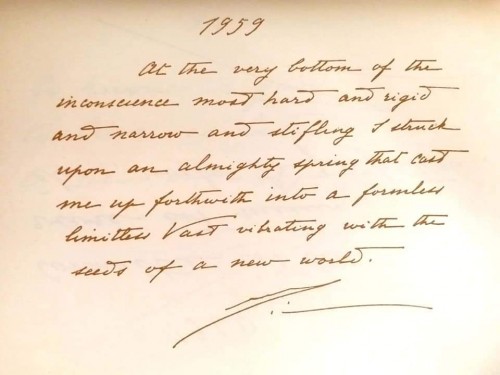 1959
At the very bottom of the
inconscience most hard and rigid
and narrow and stifling I struck
upon an almighty spring that cast
me up forthwith into a formless
limitless Vast vibrating with the
seeds of a new world.